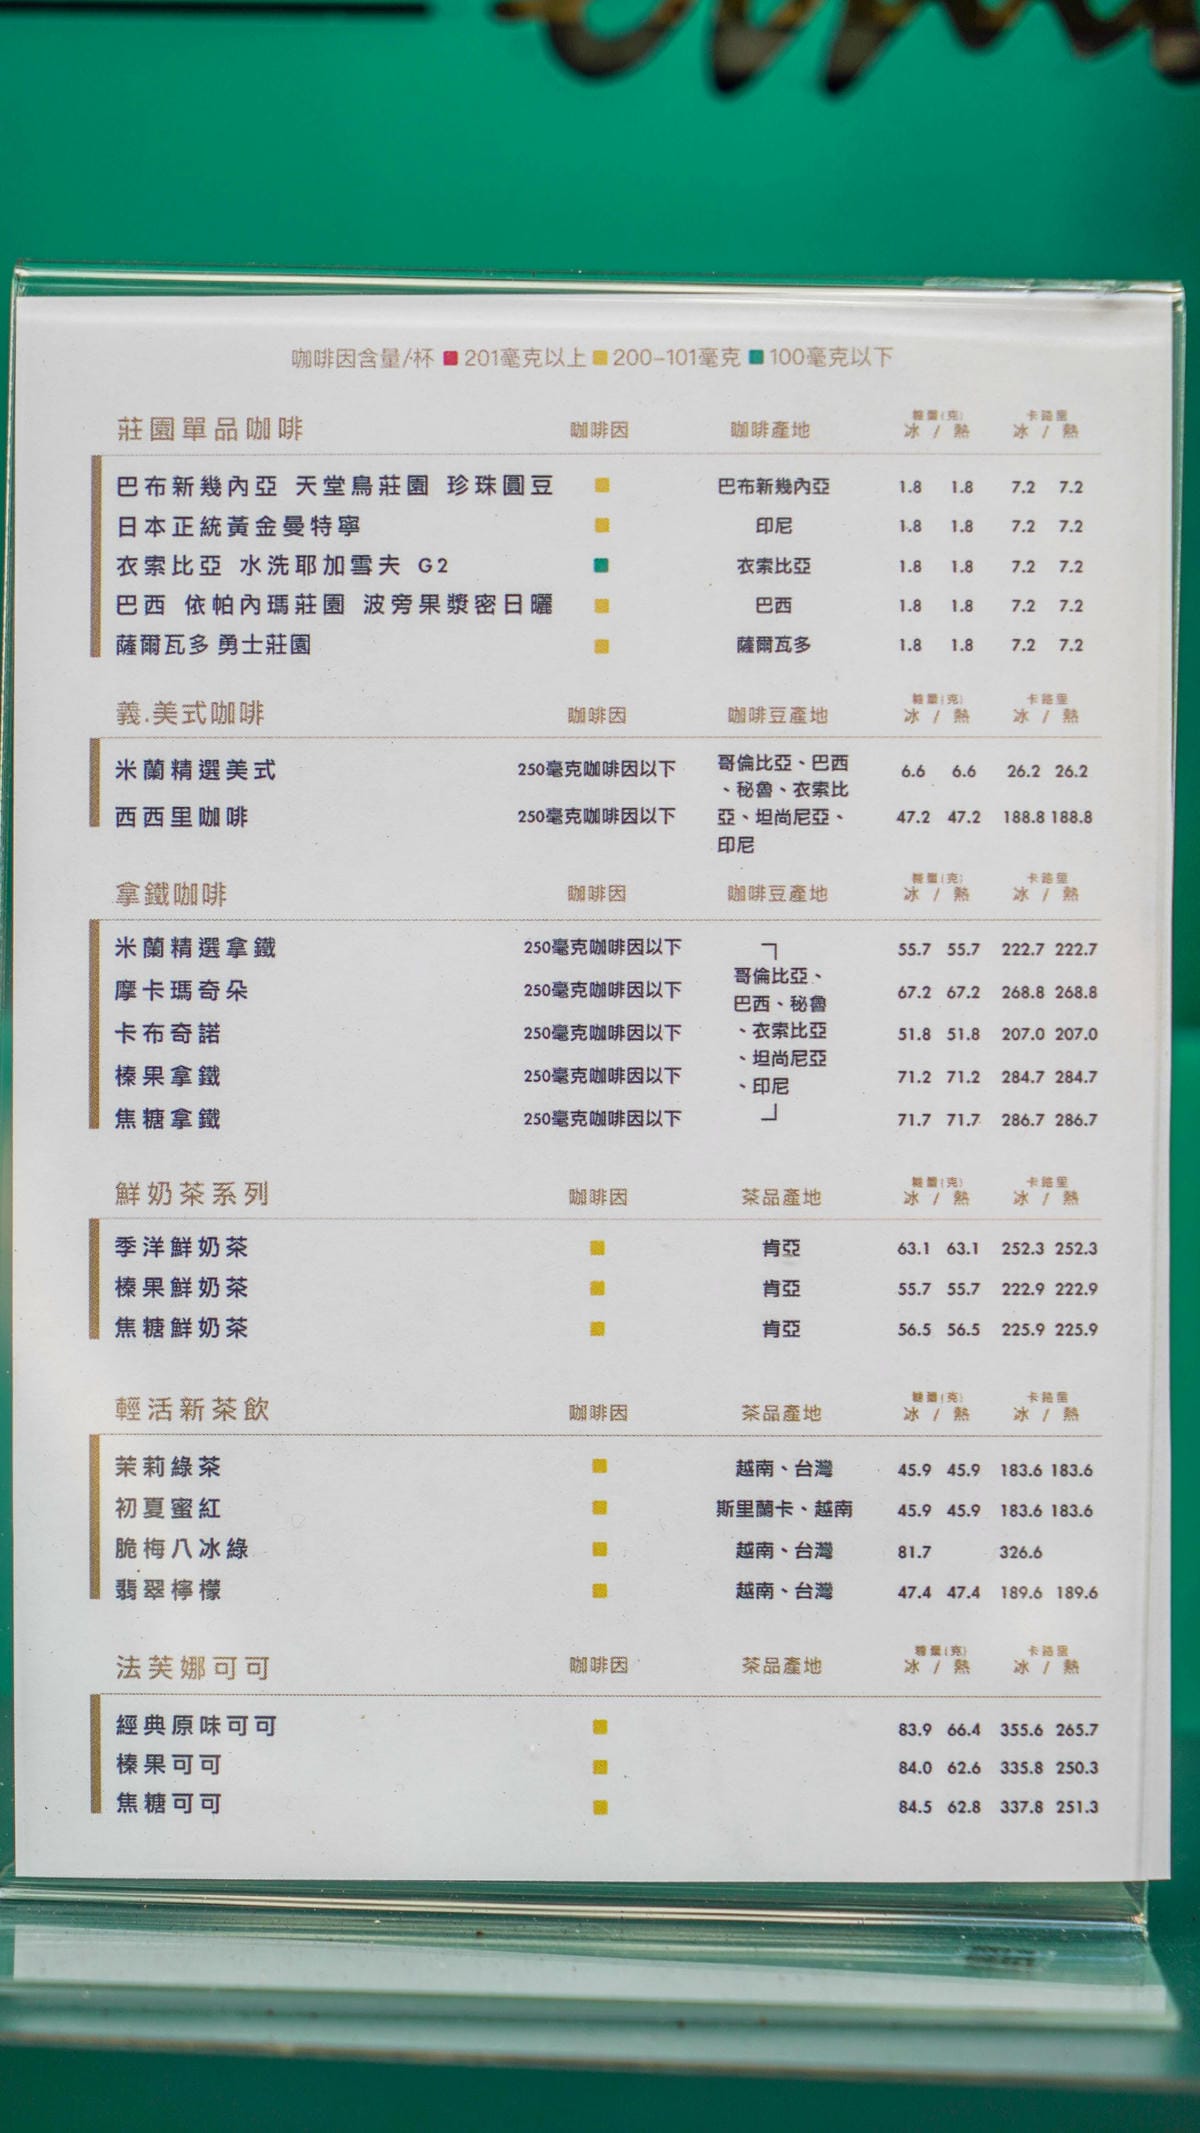 咖啡因含量/杯 201毫克以上 200-101毫克 100毫克以下
莊園單品咖啡 咖啡因 咖啡產地 糖量(克) 冰 / 熱 卡路里 冰 / 熱
巴布新幾內亞 天堂鳥莊園 珍珠圓豆 巴布新幾內亞 1.8 1.8 7.2 7.2
日本正統黃金曼特寧 印尼 1.8 1.8 7.2 7.2
衣索比亞 水洗耶加雪夫 G2 衣索比亞 1.8 1.8 7.2 7.2
巴西 依帕內瑪莊園 波旁果漿密日曬 巴西 1.8 1.8 7.2 7.2
薩爾瓦多 勇士莊園 薩爾瓦多 1.8 1.8 7.2 7.2
義.美式咖啡 咖啡因 咖啡豆產地 糖量(克) 冰 / 熱 卡路里 冰 / 熱
米蘭精選美式 250毫克咖啡因以下 6.6 6.6 26.2 26.2
西西里咖啡 250毫克咖啡因以下 47.2 47.2 188.8 188.8
哥倫比亞、巴西
、秘魯、衣索比
亞、坦尚尼亞、
印尼
拿鐵咖啡 咖啡因 咖啡豆產地 糖量(克) 冰 / 熱 卡路里 冰 / 熱
米蘭精選拿鐵 250毫克咖啡因以下 55.7 55.7 222.7 222.7
摩卡瑪奇朵 250毫克咖啡因以下 67.2 67.2 268.8 268.8
卡布奇諾 250毫克咖啡因以下 51.8 51.8 207.0 207.0
榛果拿鐵 250毫克咖啡因以下 71.2 71.2 284.7 284.7
焦糖拿鐵 250毫克咖啡因以下 71.7 71.7 286.7 286.7
哥倫比亞、
巴西、秘魯
、衣索比亞
、坦尚尼亞
、印尼
鮮奶茶系列 咖啡因 茶品產地 糖量(克) 冰 / 熱 卡路里 冰 / 熱
季洋鮮奶茶 肯亞 63.1 63.1 252.3 252.3
榛果鮮奶茶 肯亞 55.7 55.7 222.9 222.9
焦糖鮮奶茶 肯亞 56.5 56.5 225.9 225.9
輕活新茶飲 咖啡因 茶品產地 糖量(克) 冰 / 熱 卡路里 冰 / 熱
茉莉綠茶 越南、台灣 45.9 45.9 183.6 183.6
初夏蜜紅 斯里蘭卡、越南 45.9 45.9 183.6 183.6
脆梅八冰綠 越南、台灣 81.7 326.6
翡翠檸檬 越南、台灣 47.4 47.4 189.6 189.6
法芙娜可可 咖啡因 茶品產地 糖量(克) 冰 / 熱 卡路里 冰 / 熱
經典原味可可 83.9 66.4 355.6 265.7
榛果可可 84.0 62.6 335.8 250.3
焦糖可可 84.5 62.8 337.8 251.3